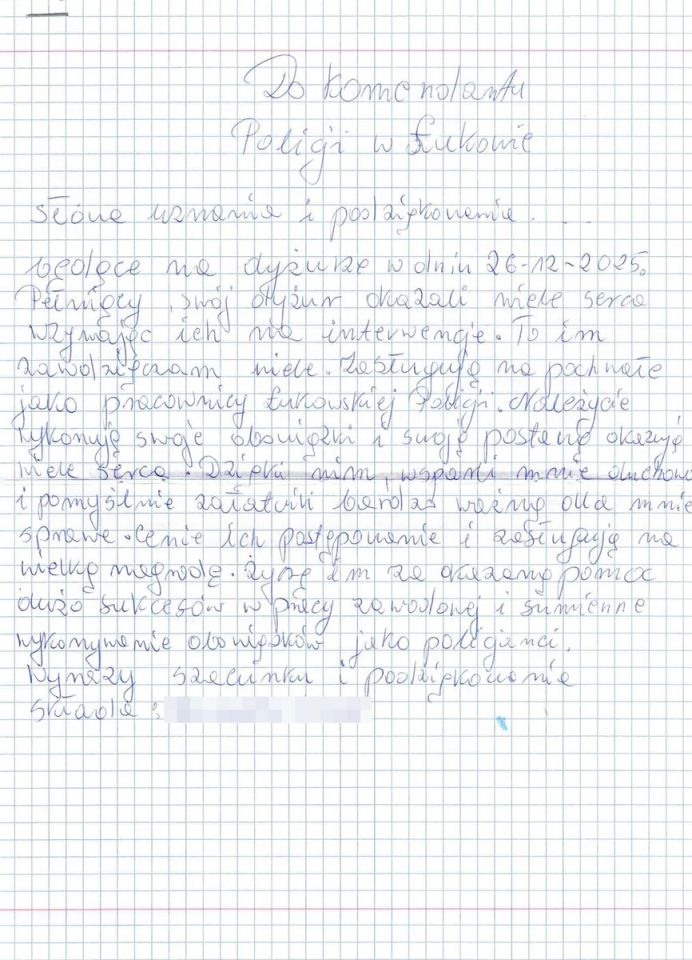 Do komendantu
Policji w Łukowie
Słowa uznania i podziękowania . . .
będące na dyżurze w dniu 26-12-2025.
Pełniący swój dyżur okazali wiele serca
wzywając ich na interwencje. To im
zawdzięczam wiele. Zasługują na pochwałe
jako pracownicy Łukowskiej Policji. Należycie
wykonują swoje obowiązki i swoją postawą okazują
wiele serca. Dzięki nim, wsparli mnie duchowo
i pomyślnie załatwili bardzo ważną dla mnie
sprawe. Cenie ich postępowanie i zasługują na
wielką nagrodę. Życzę im za okazaną pomoc
dużo sukcesów w pracy zawodowej i sumienne
wykonywanie obowiązków jako policjanci.
Wyrazy szacunku i podziękowania
składa :